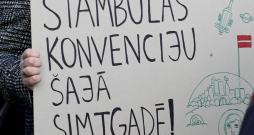 STAMBULAS
KONVENCIJU
ŠAJĀ
SIMTGADĒ!